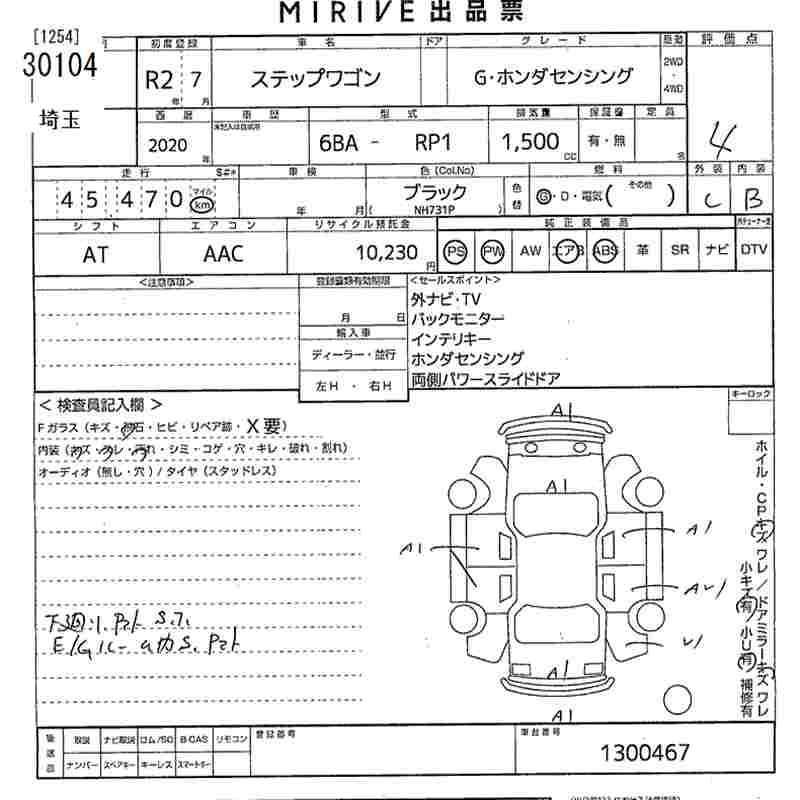 MIRIVE 出品票
[1254]
30104
埼玉
初度登録 車名 ドア グレード 駆動 評価点
R2 7 ステップワゴン G・ホンダセンシング 2WD・4WD
年 月
西暦 車歴 型式 排気量 保証書 定員
2020 年 6BA - RP1 1,500 CC 有・無 名 4
走行 S#* 車検 色(Col,No) 燃料 外装 内装
45470 マイル km 年 月 ブラック ( NH731P ) 色替 G・D・電気( その他 ) C B
シフト エアコン リサイクル預託金 純正装備品
AT AAC 10,230 円 PS PW AW エアB ABS 革 SR ナビ DTV
<注意事項> 登録書類有効期限 <セールスポイント>
月 日
輸入車
ディーラー・並行
左H ・ 右H
外ナビ・TV
バックモニター
インテリキー
ホンダセンシング
両側パワースライドドア
< 検査員記入欄 > キーロック
Fガラス (キズ・飛石・ヒビ・リペア跡・X要)
内装 (キズ・スレ・汚れ・シミ・コゲ・穴・キレ・破れ・割れ)
オーディオ (無し・穴) / タイヤ (スタッドレス)
A1
A1
A1
A1
AU1
U1
A1
A1
ホイル・CPキズワレ/ドアミラーキズワレ
小キズ有 小U有 補修有
後送品 取説 ナビ取説 ロム/SD B-CAS リモコン 登録番号 車台番号
ナンバー スペアキー キーレス スマートキー 1300467